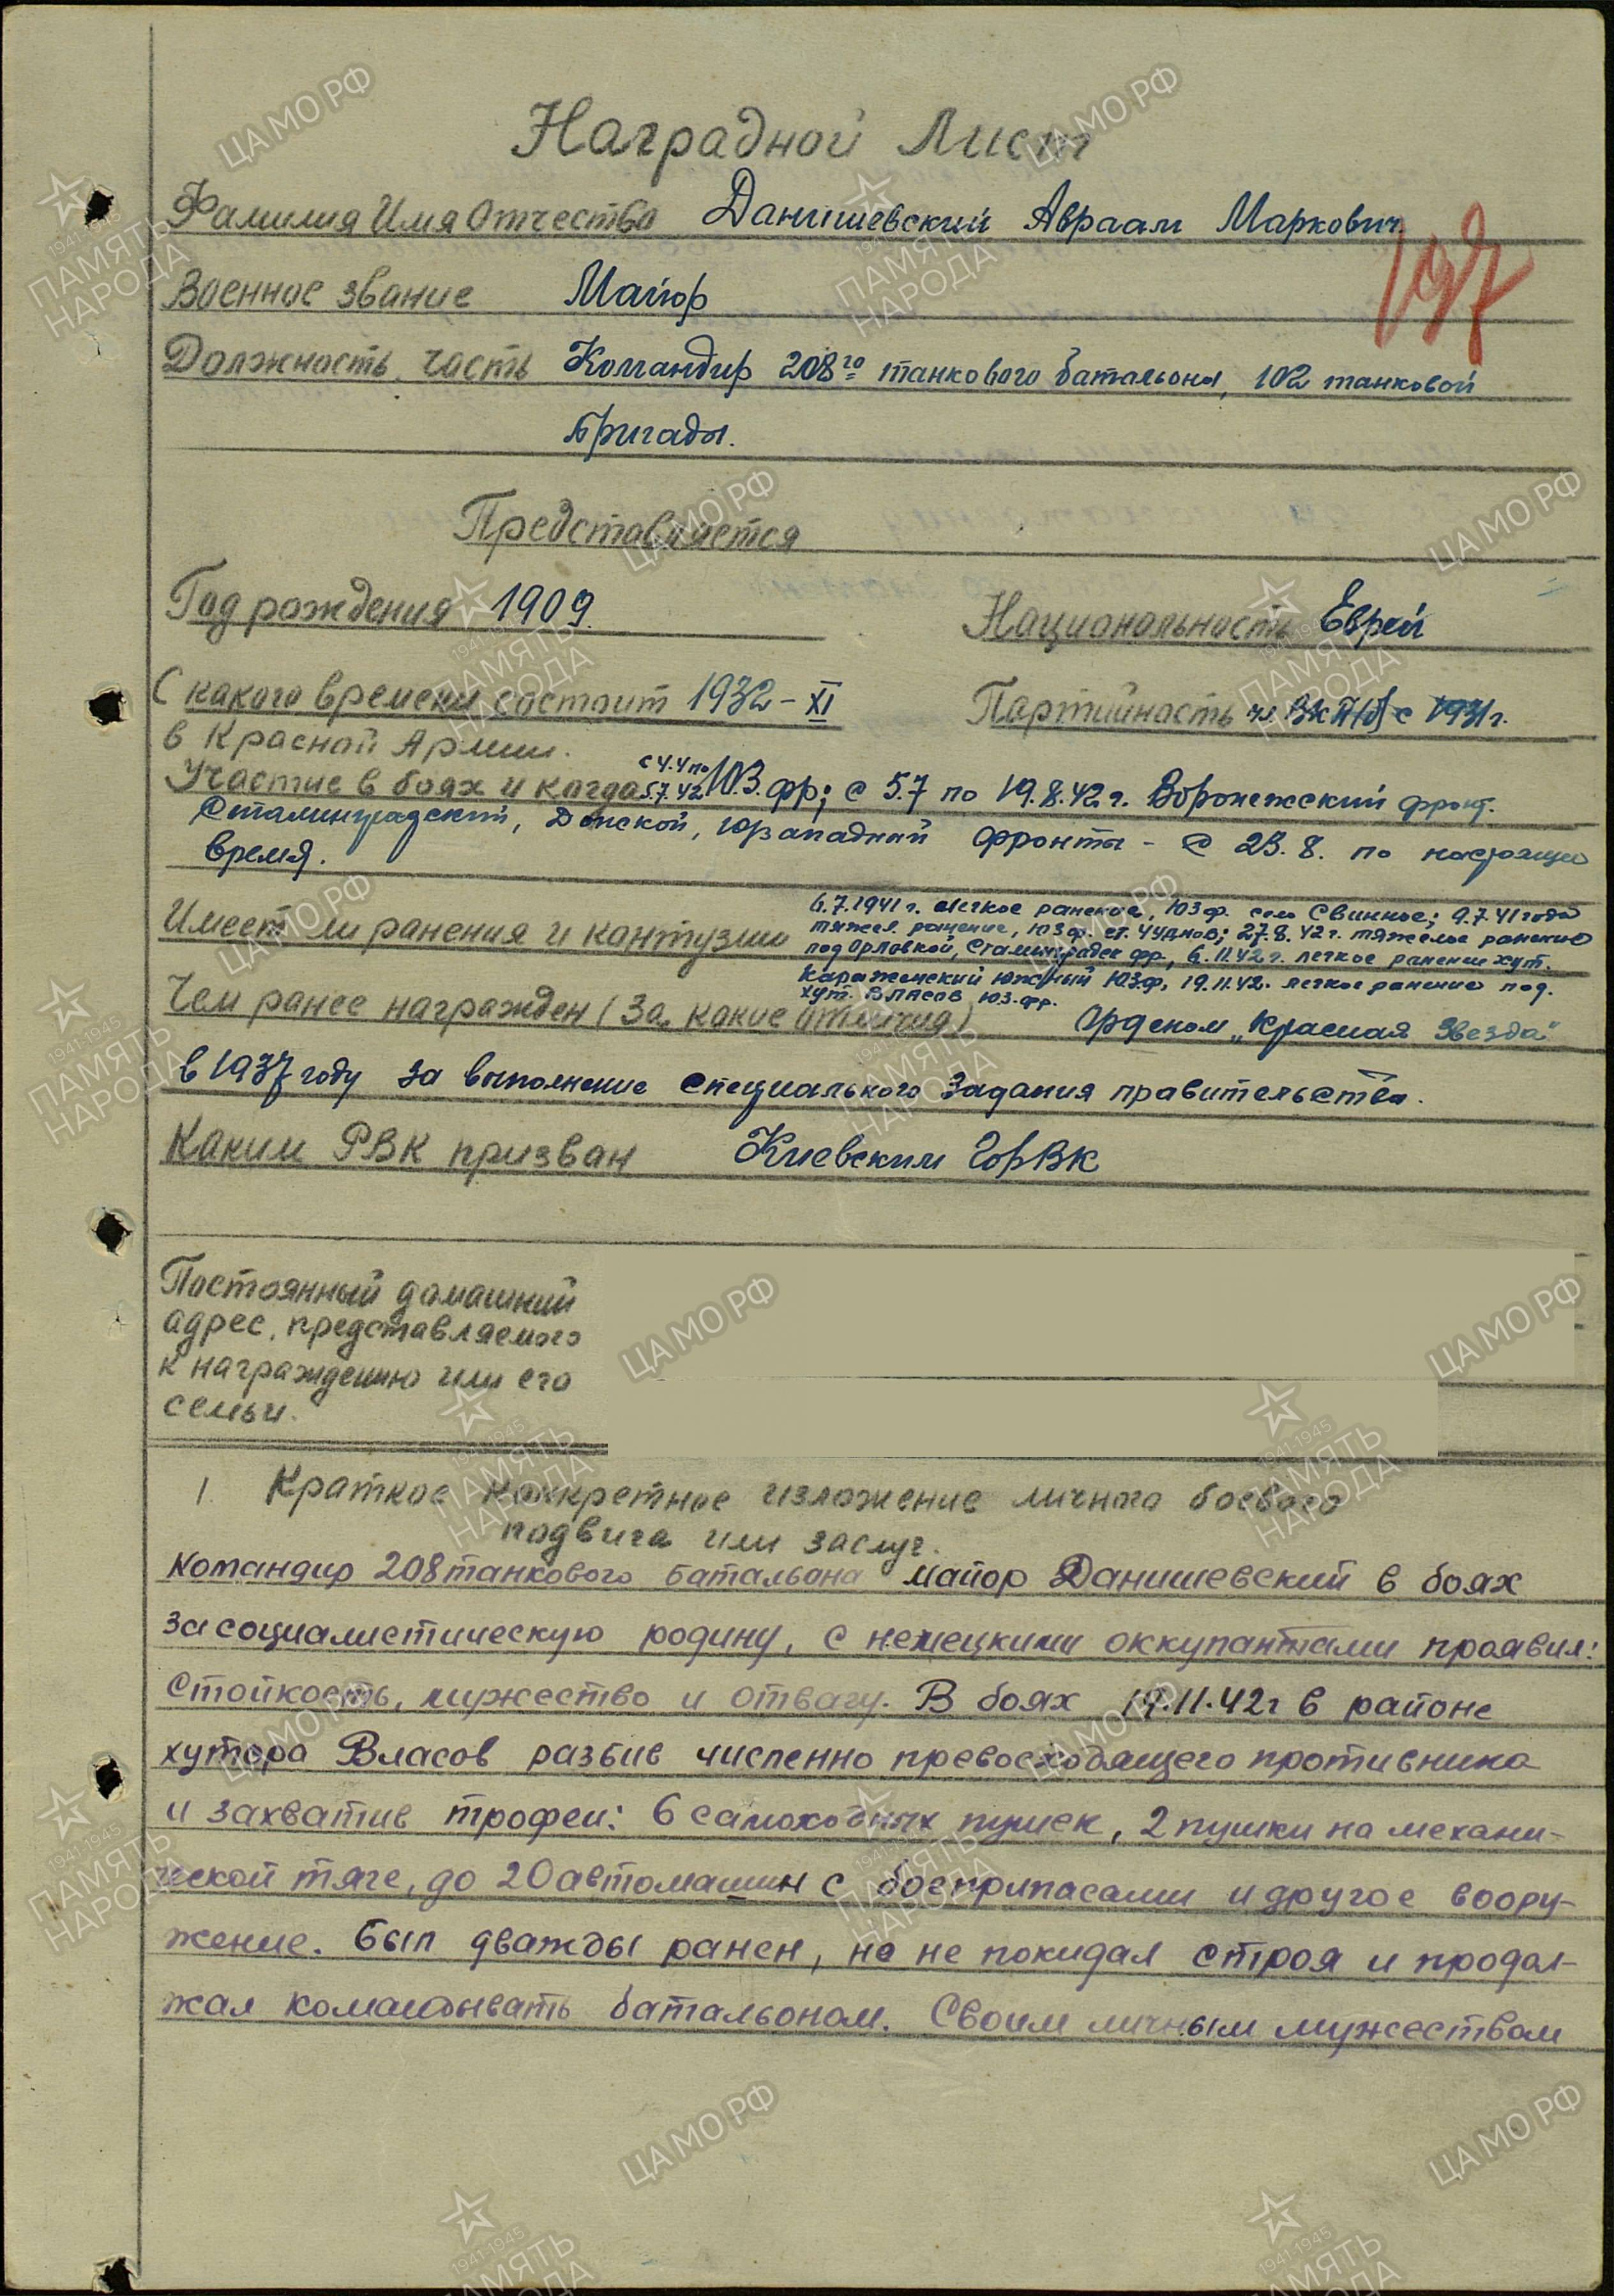 Наградной Лист
Фамилия Имя Отчество Данишевский Авраам Маркович.
197
Военное звание Майор
Должность, часть Командир 208го танкового батальона, 102 танковой
Бригады.
Представляется
Год рождения 1909. Национальность Еврей
С какого времени состоит 1932-XI Партийность чл. ВКП(б) с 1931г.
в Красной Армии.
Участие в боях и когда с 4.4 по 5.7.42 Ю.З. фр; с 5.7 по 19.8.42г. Воронежский фронт.
Сталинградский, Донской, Югозападный фронты - с 23.8. по настоящее
время.
Имеет ли ранения и контузии 6.7.1941г. легкое ранение, ЮЗф. село Свинное; 9.7.41 года
тяжел. ранение, ЮЗф. ст. Чуднов; 27.8.42г. тяжелое ранение
под Орловкой, Сталинградск фр, 6.11.42г. легкое ранение хут.
Караженский Южный ЮЗф, 19.11.42. легкое ранение под.
хут. Власов ЮЗ.фр.
Чем ранее награжден (за какие отличия) Орденом „Красная Звезда"
в 1937 году за выполнение специального задания правительства.
Каким РВК призван Киевским ГорВК
Постоянный домашний
адрес, представляемого
к награждению или его
семьи.
1. Краткое конкретное изложение личного боевого
подвига или заслуг.
Командир 208 танкового батальона майор Данишевский в боях
за социалистическую родину, с немецкими оккупантами проявил:
Стойкость, мужество и отвагу. В боях 19.11.42г в районе
хутора Власов разбив численно превосходящего противника
и захватив трофеи: 6 самоходных пушек, 2 пушки на механи-
ческой тяге, до 20 автомашин с боеприпасами и другое воору-
жение. Был дважды ранен, но не покидал строя и продол-
жал командывать батальоном. Своим личным мужеством
ЦАМО РФ
1941-1945
ПАМЯТЬ
НАРОДА